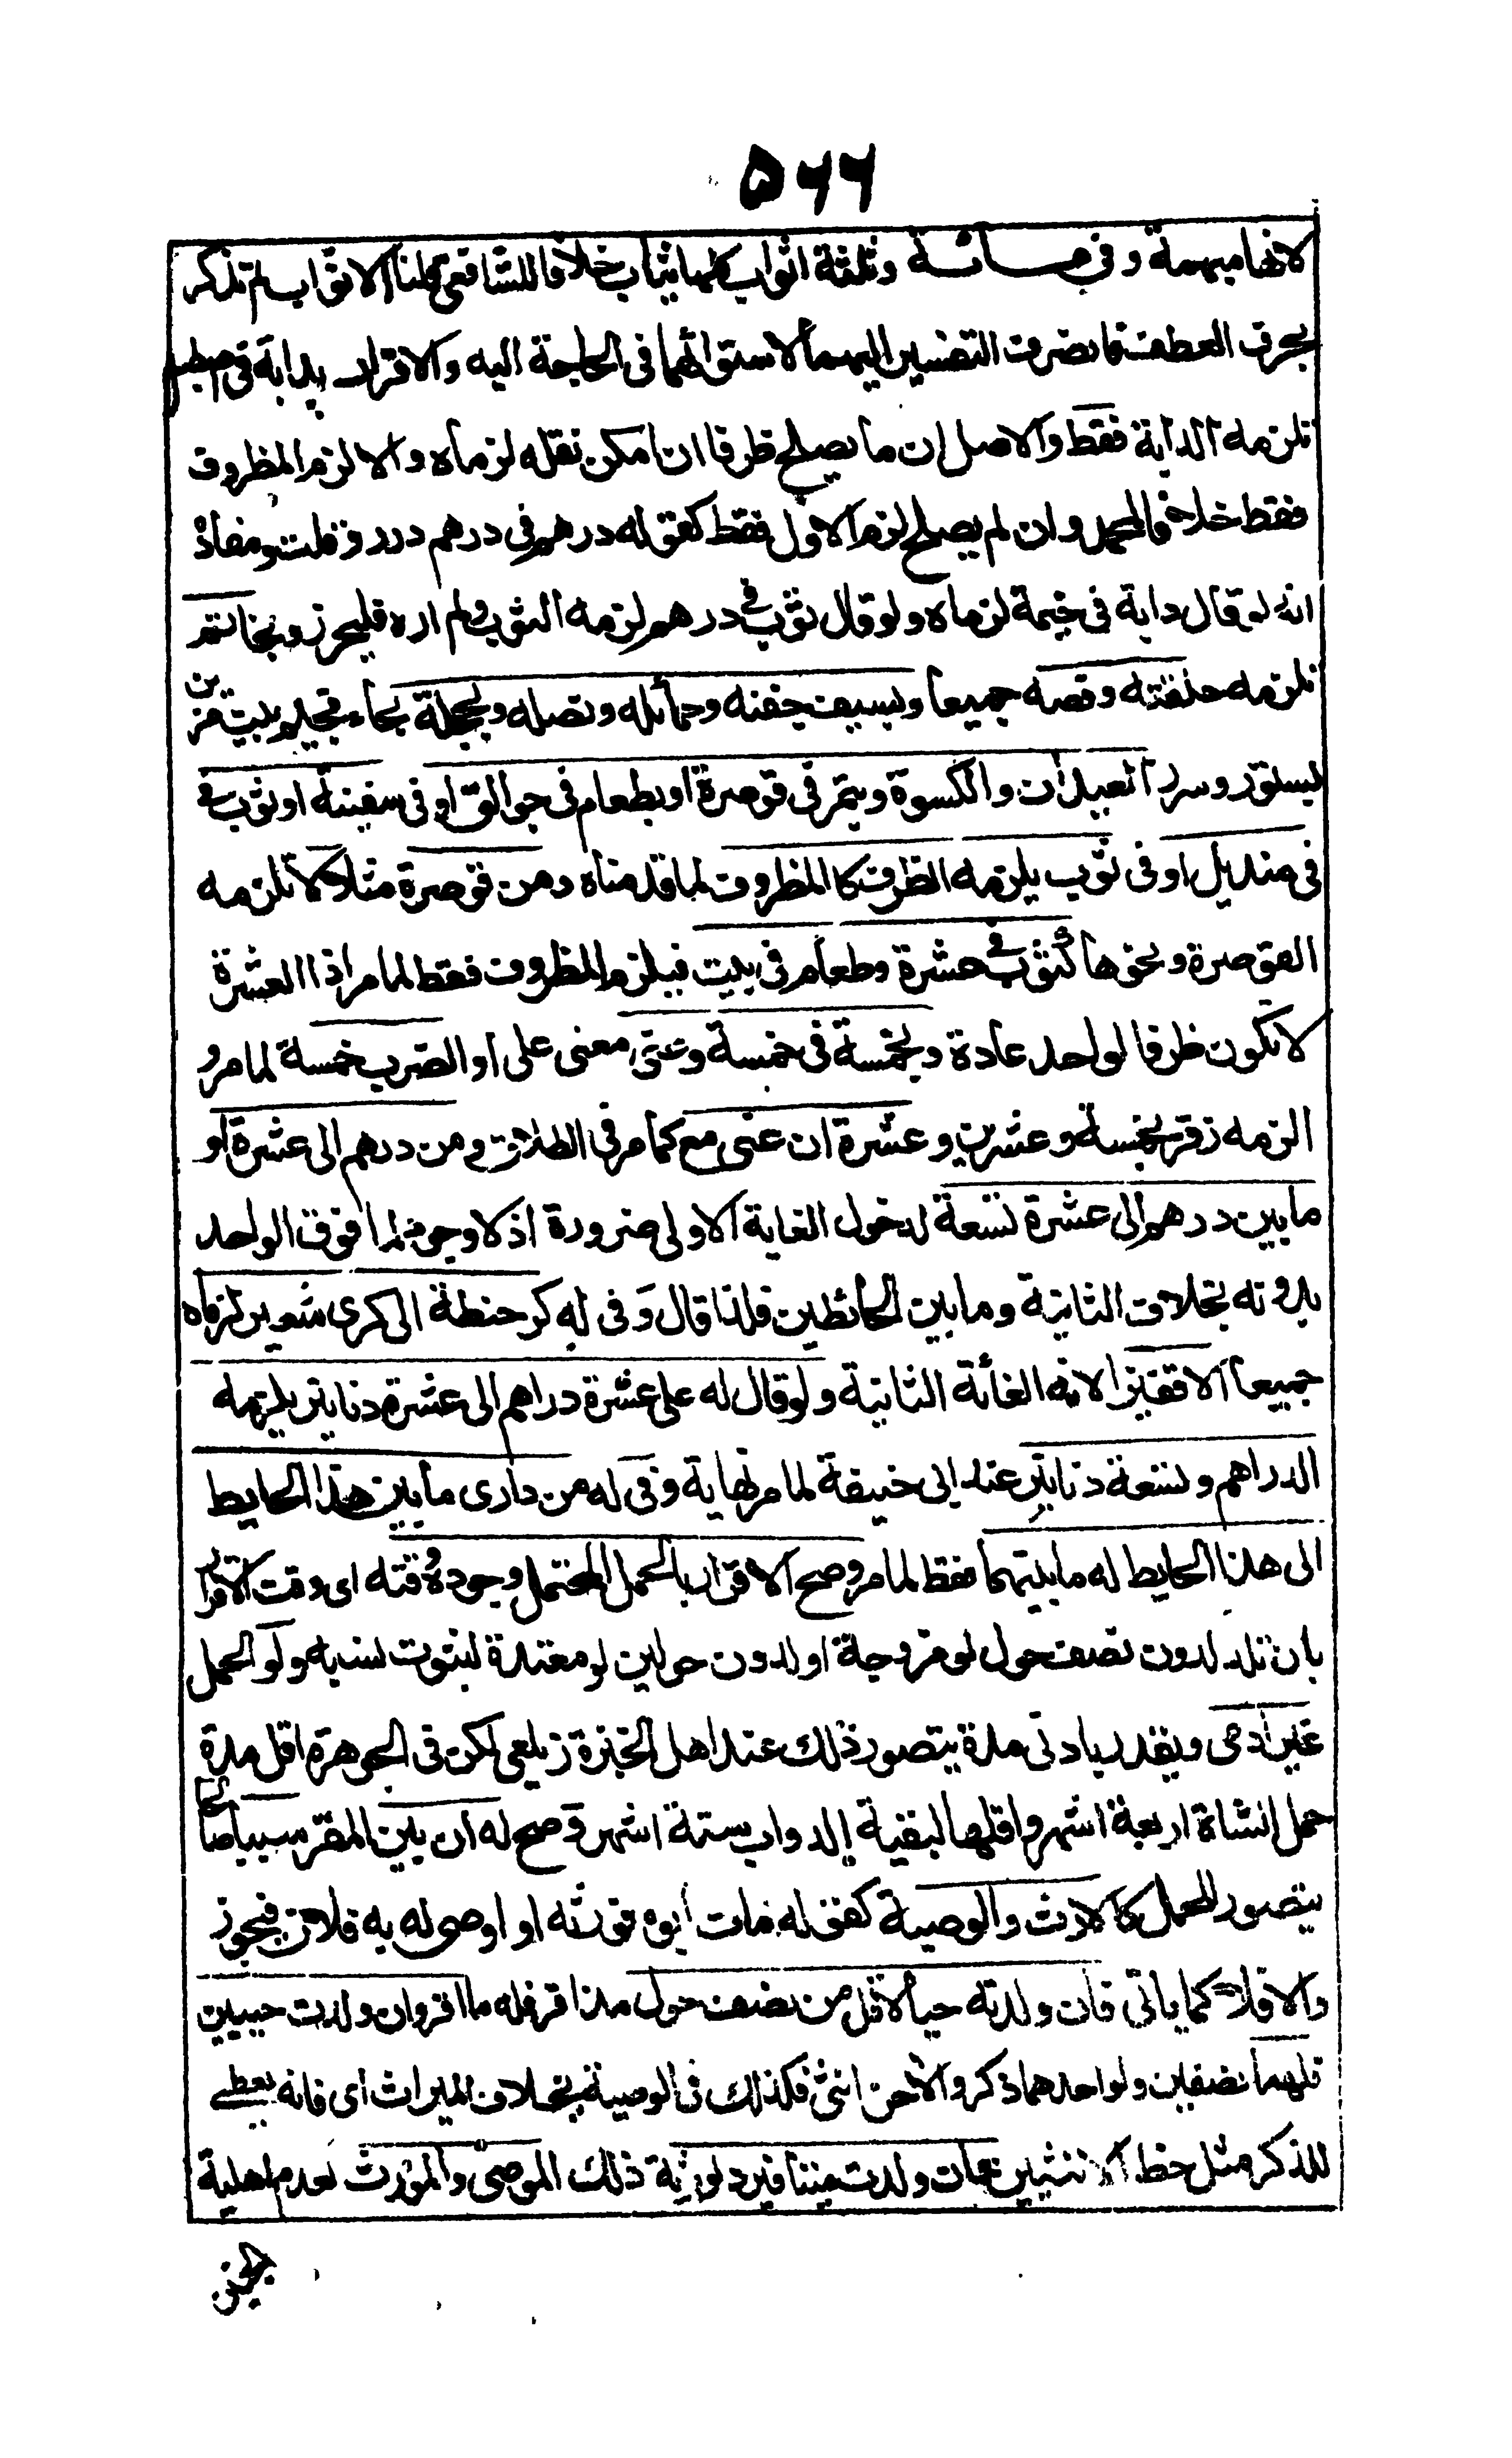 ٥٦٦
لانها مبهمة وفى مائة وثلثة اثواب كلها ثياب خلافا للشافعى قلنا الاثواب لم تذكر
بحرف العطف فانصرف التفسير اليهما لاستوائهما فى الحاجة اليه والاقرار بدابة فى اصطبل
تلزمه الدابة فقط والاصل ان ما يصلح ظرفا ان امكن نقله لزماه والا لزم المظروف
فقط خلافا لمحمد وان لم يصلح لزم الاول فقط كقوله درهم فى درهم درر قلت ومفاده
انه لو قال دابة فى خيمة لزماه ولو قال ثوب فى درهم لزمه الثوب ولم اره فليحرر وبخاتم
تلزمه حلقته وفصه جميعا وبسيف جفنه وحمائله ونصله وبحجلة بحاء فجيم بيت مزين
بستور وسرر العيدان والكسوة وبتمر فى قوصرة او بطعام فى جوالق او فى سفينة او ثوب فى
فى منديل او فى ثوب يلزمه الظرف كالمظروف لما قدمناه ومن قوصرة مثلا لا تلزمه
القوصرة ونحوها كثوب فى عشرة وطعام فى بيت فيلزم المظروف فقط لما مر اذ العشرة
لا تكون ظرفا لواحد عادة وبخمسة فى خمسة وعنى معنى على او الضرب خمسة لما مر و
الزمه زفر بخمسة وعشرين وعشرة ان عنى مع كما مر فى الطلاق ومن درهم الى عشرة او
ما بين درهم الى عشرة تسعة لدخول الغاية الاولى ضرورة اذ لا وجود لما فوق الواحد
بدونه بخلاف الثانية وما بين الحائطين فلذا قال وفى له كر حنطة الى كرى شعير لزماه
جميعا الا قفيزا لانه الغاية الثانية ولو قال له على عشرة دراهم الى عشرة دنانير يلزمه
الدراهم وتسعة دنانير عند ابى حنيفة لما مر نهاية وفى له من دارى ما بين هذا الحايط
الى هذا الحايط له ما بينهما فقط لما مر وصح الاقرار بالحمل المحتمل وجوده وقته اى وقت الاقرار
بان تلد لدون نصف حول لو مزوجة او لدون حولين لو معتدة لثبوت نسبه ولو الحمل
غير ادمى ويقدر بادنى مدة يتصور ذلك عند اهل الخبرة زيلعى لكن فى الجوهرة اقل مدة
حمل الشاة اربعة اشهر واقلها لبقية الدواب ستة اشهر وصح له ان بين المقر سببا صالحا
يتصور للحمل كالارث والوصية كقوله مات ابوه فورثه او اوصى له به فلان فيجوز
والا فلا كما ياتى فان ولدته حيا لاقل من نصف حول مذ اقر فله ما اقر وان ولدت حيين
فلهما نصفين ولو احدهما ذكر والاخر انثى فكذلك فى الوصية بخلاف الميراث اى فانه يعطى
للذكر مثل حظ الانثيين مات ولدت ميتا فيرد لورثة ذلك الموصى والمورث لعدم اهلية
الجنين